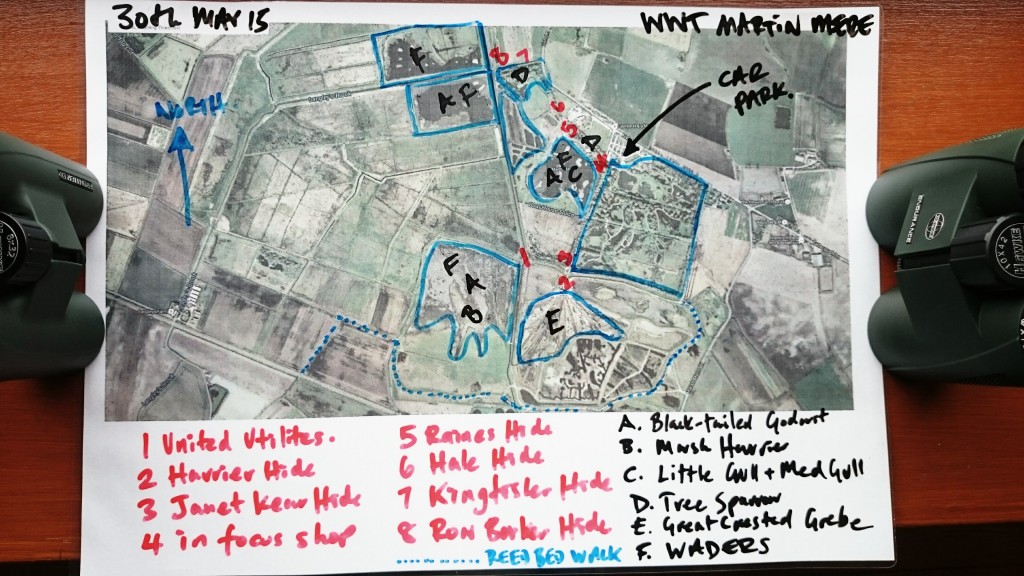 30th MAY 15
WWT MARTIN MERE
NORTH
CAR
PARK.
F
A F
8 7
D
6
5
D
4
F
A C
1
3
2
F
A
B
E
1 United Utilites.
2 Harrier Hide
3 Janet Kear Hide
4 in focus shop
5 Raines Hide
6 Hale Hide
7 Kingfisher Hide
8 Ron Barker Hide
REED BED WALK
A. Black-tailed Godwit
B. Marsh Harrier
C. Little Gull + Med Gull
D. Tree Sparrow
E. Great Crested Grebe
F. WADERS
ENDURANCE
HAWKE
10x42